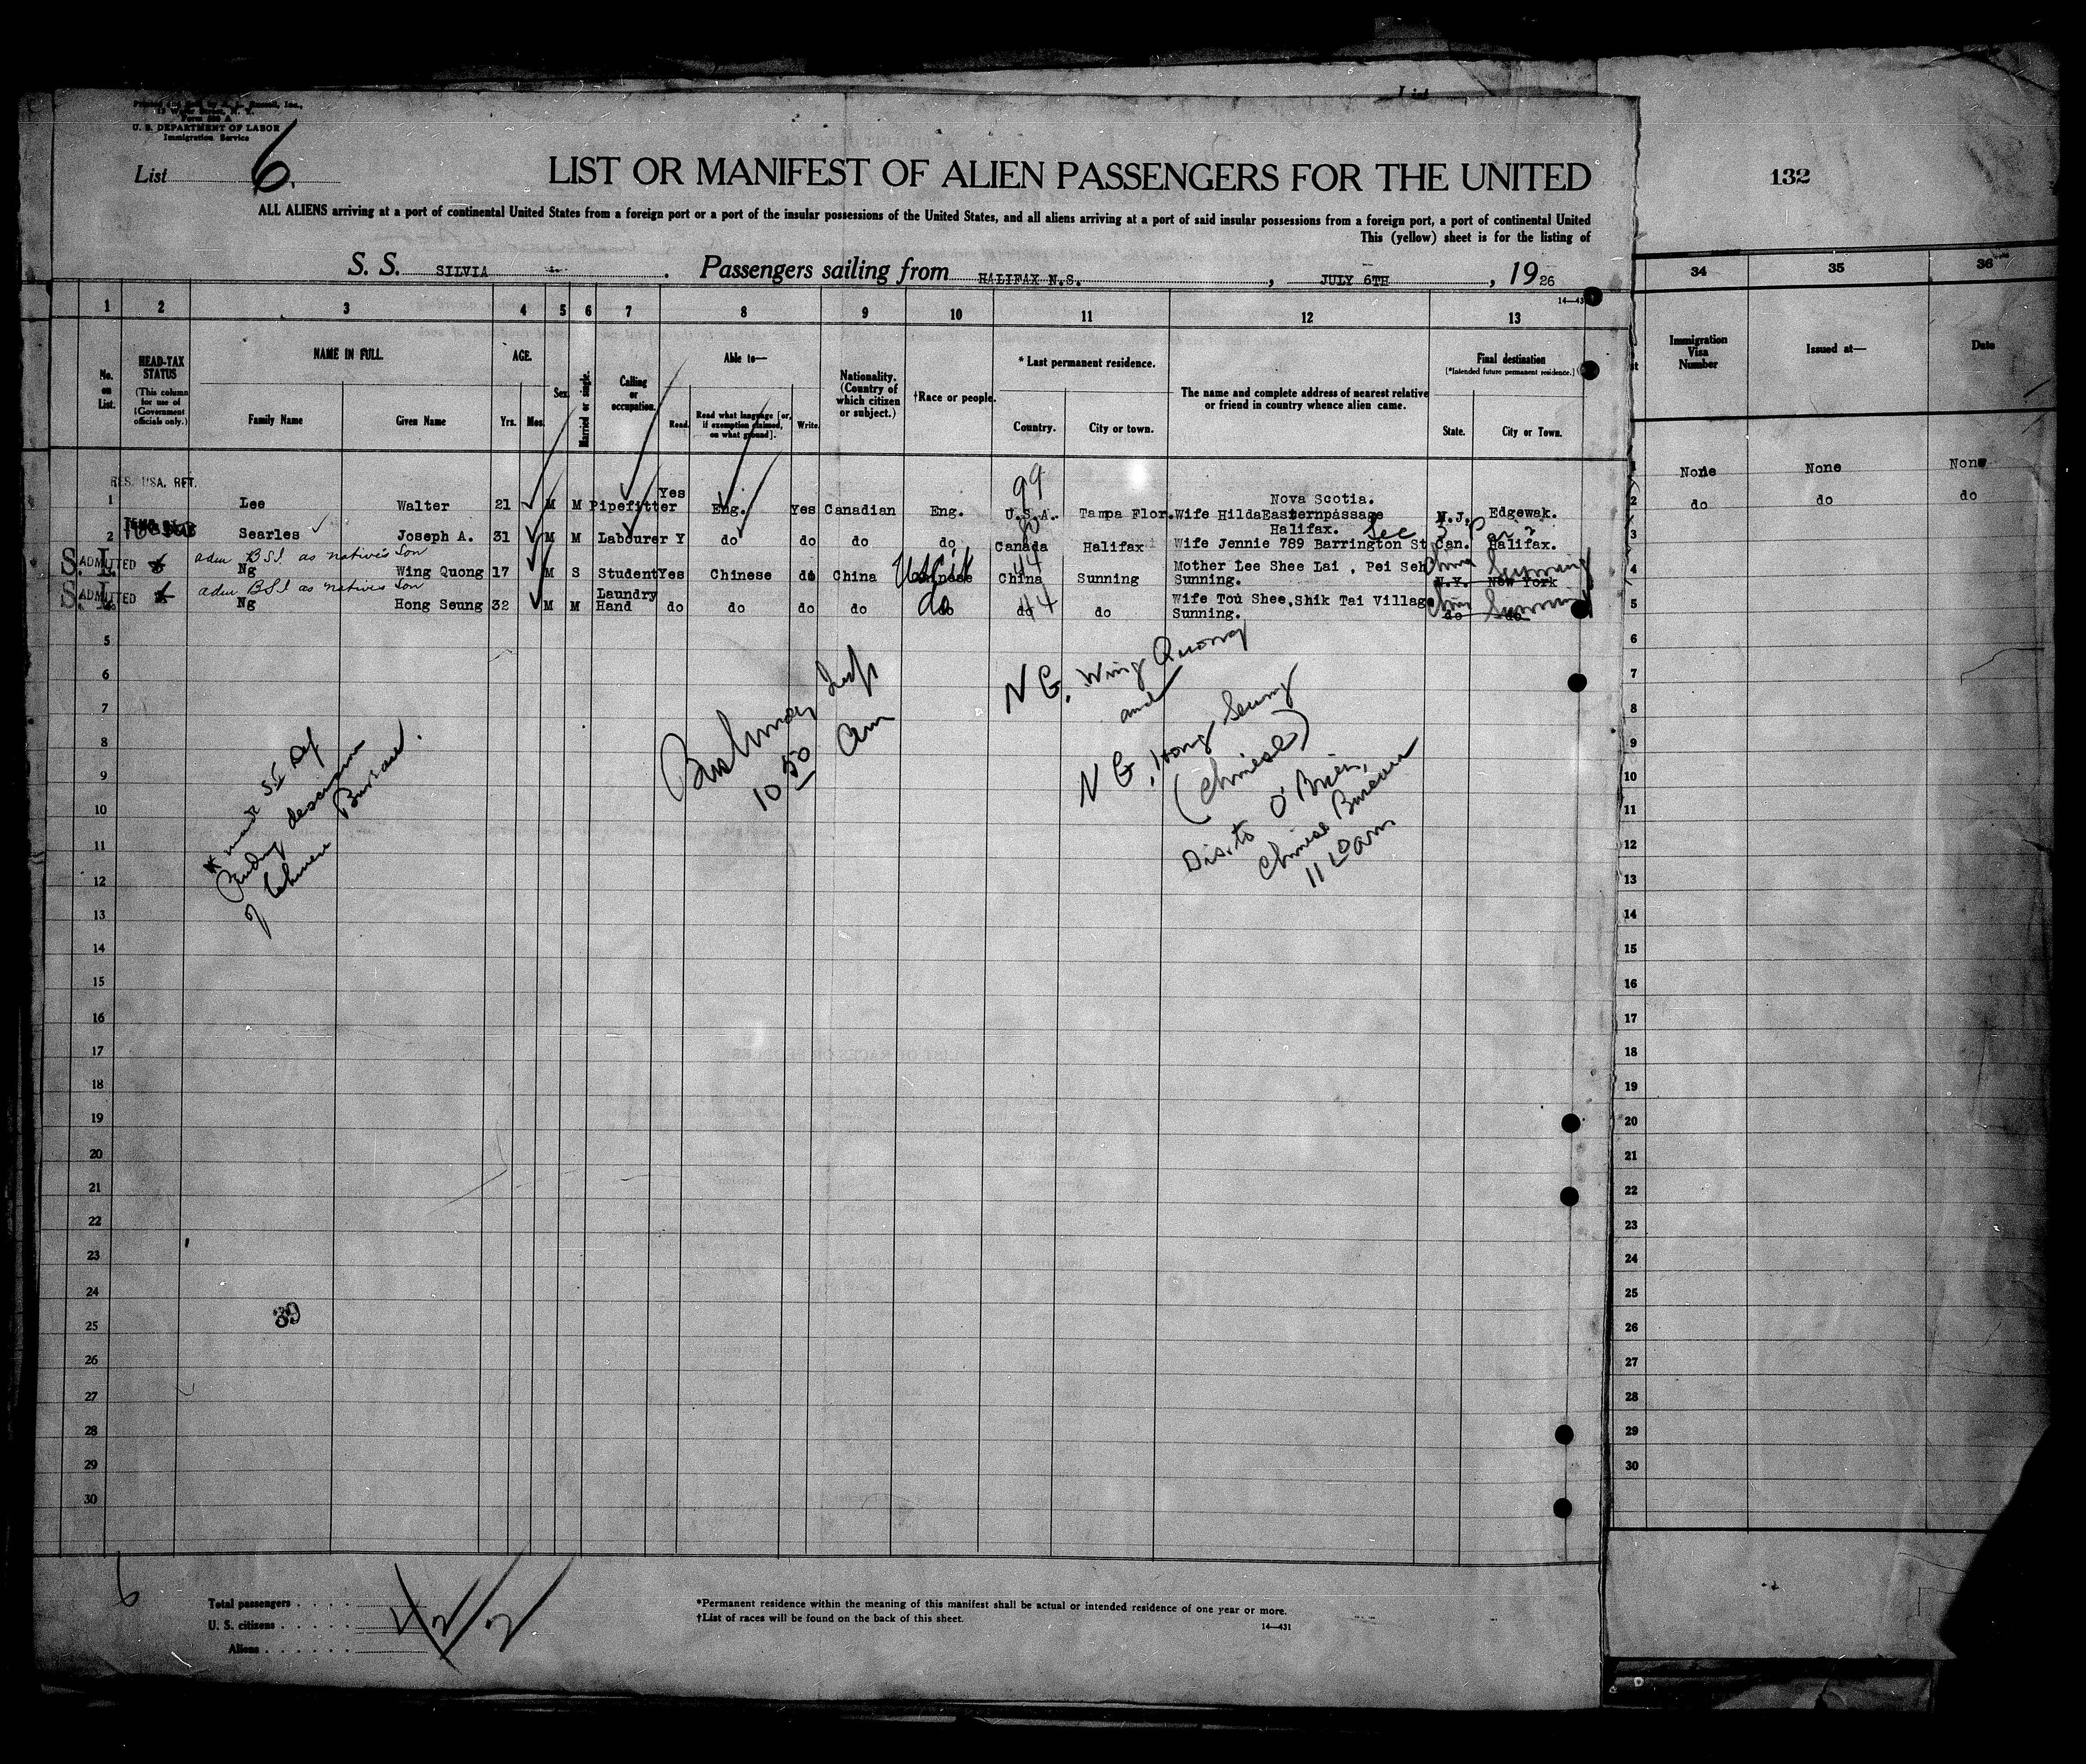 U. S. DEPARTMENT OF LABOR
Immigration Service
List 6.
LIST OR MANIFEST OF ALIEN PASSENGERS FOR THE UNITED
132
ALL ALIENS arriving at a port of continental United States from a foreign port or a port of the insular possessions of the United States, and all aliens arriving at a port of said insular possessions from a foreign port, a port of continental United
This (yellow) sheet is for the listing of
S. S. SILVIA . Passengers sailing from HALIFAX N.S. , JULY 6TH , 1926
1 2 3 4 5 6 7 8 9 10 11 12 13 34 35 36
No. on List.
HEAD-TAX STATUS
(This column for use of Government officials only.)
NAME IN FULL.
Family Name Given Name
AGE.
Yrs. Mos.
Sex
Married or single.
Calling or occupation.
Able to—
Read. Read what language [or, if exemption claimed, on what ground]. Write.
Nationality. (Country of which citizen or subject.)
†Race or people.
*Last permanent residence.
Country. City or town.
The name and complete address of nearest relative or friend in country whence alien came.
Final destination
[*Intended future permanent residence.]
State. City or Town.
Immigration Visa Number
Issued at—
Date
RES. USA. RET.
99
1 Lee Walter 21 M M Pipefitter Yes Eng. Yes Canadian Eng. U.S.A. Tampa Flor. Wife Hilda Easternpassage Nova Scotia. N.J. Edgewak.
2 Searles Joseph A. 31 M M Labourer Y do do do do Canada Halifax Wife Jennie 789 Barrington St Halifax. Can. Halifax.
S. I. ADMITTED adm BSI as natives Son
Ng Wing Quong 17 M S Student Yes Chinese do China China 44 Sunning Mother Lee Shee Lai , Pei Seh Sunning. China Sunning N.Y. New York
S. I. ADMITTED adm BSI as natives Son
Ng Hong Seung 32 M M Laundry Hand do do do do do do 44 do Wife Tou Shee,Shik Tai Village Sunning. Sunning do do
None None None
do do do
5
6
7
8
9
10
11
12
13
14
15
16
17
18
19
20
21
22
23
24
25
26
27
28
29
30
Bushmay Insp
10 50 am
NG, Wing Quong
and
NG, Hong Seung
(Chinese)
Dis. to O'Brien,
Chinese Bureau
11 10 am
Pending
of Chinese Bureau.
39
1
2
3
4
5
6
7
8
9
10
11
12
13
14
15
16
17
18
19
20
21
22
23
24
25
26
27
28
29
30
6
Total passengers . . . .
U. S. citizens . . . . . .
Aliens . . . . . . .
*Permanent residence within the meaning of this manifest shall be actual or intended residence of one year or more.
†List of races will be found on the back of this sheet.
14—431